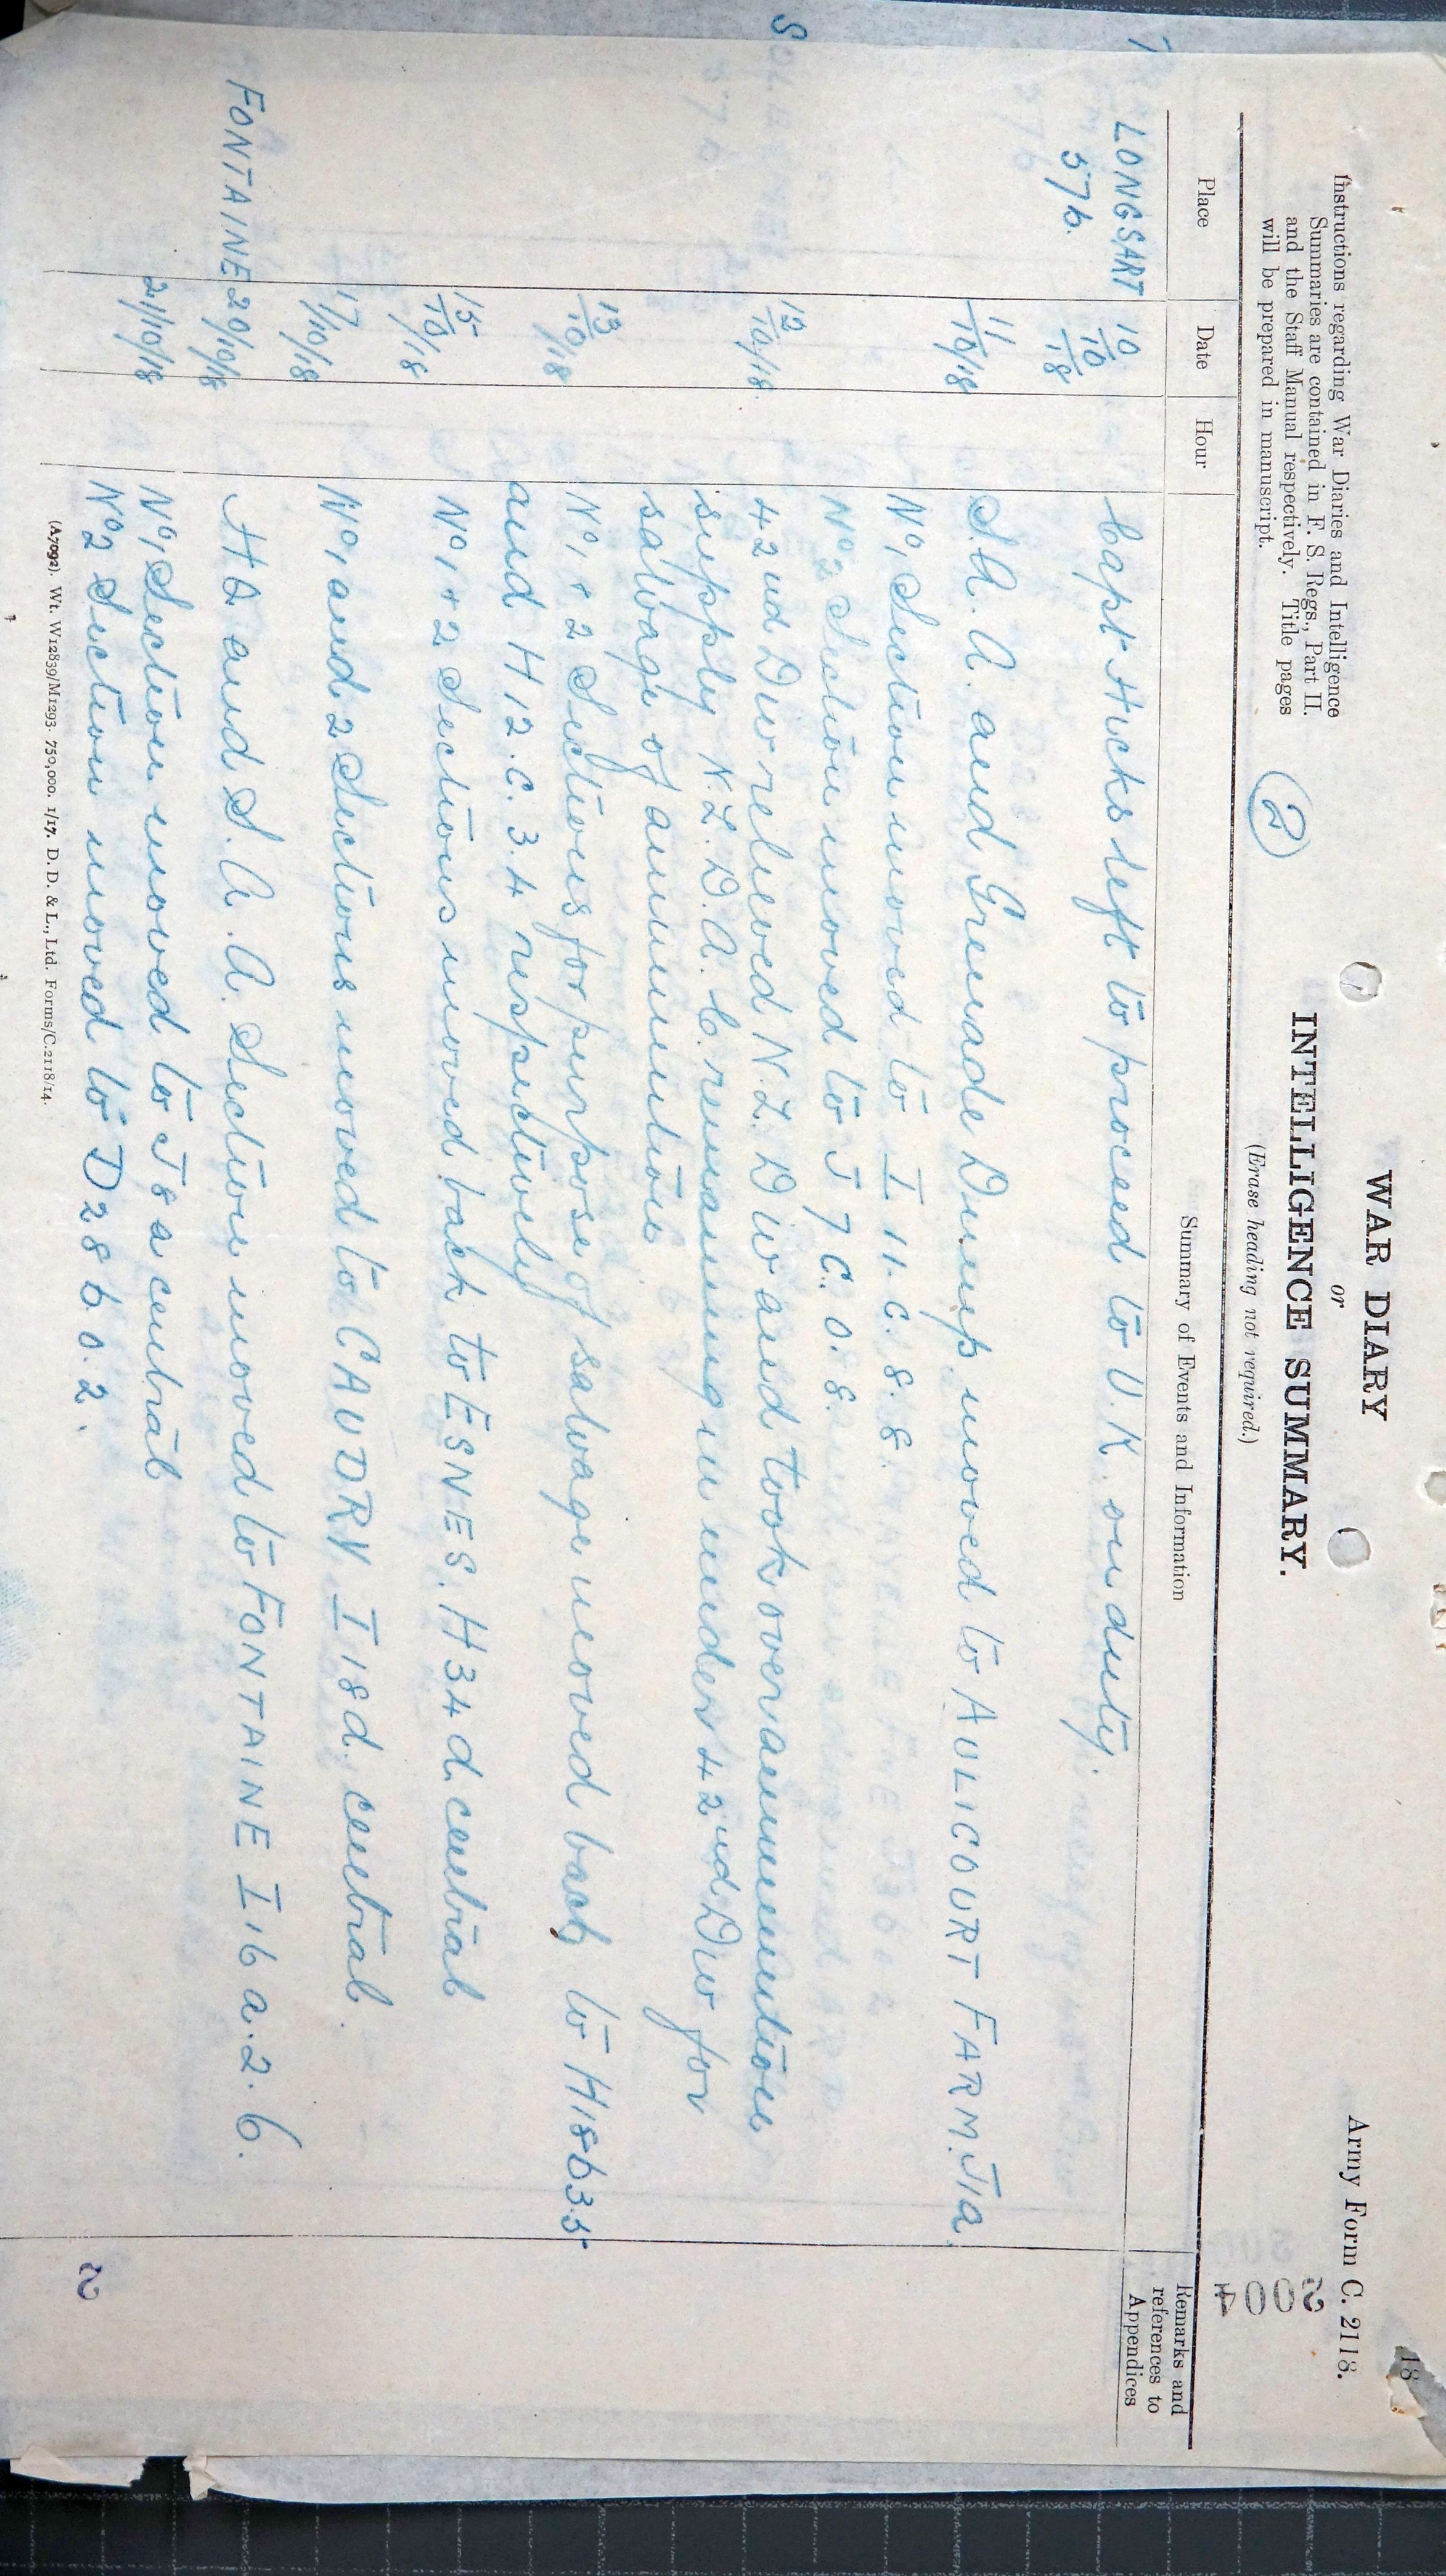 Army Form C. 2118.
WAR DIARY
or
INTELLIGENCE SUMMARY.
(Erase heading not required.)
Instructions regarding War Diaries and Intelligence
Summaries are contained in F. S. Regs., Part II.
and the Staff Manual respectively. Title pages
will be prepared in manuscript.
2
2004
18
Place Date Hour Summary of Events and Information Remarks and
references to
Appendices
LONGSART 10/10/18 Capt Hicks left to proceed to U.K. on duty.
57b.
11/10/18 S.A.A. and Grenade Dump moved to AULICOURT FARM. J1a.
No 1 Section moved to I 11. c. 8. 8.
No 2 Section moved to J 7 C. 0. 8.
12/10/18 42nd Div relieved N.Z. Div and took over ammunition
supply N.Z.D.A.C. remaining in under 42nd Div for
salvage of ammunition
13/10/18 No 1 + 2 Sections for purpose of salvage moved back to H18b3.5
and H12.c.3.4 respectively
15/10/18 No 1 + 2 Sections moved back to ESNES. H34d. central
17/10/18 No 1 and 2 Sections moved to CAUDRY I 18d. central.
FONTAINE 20/10/18 HQ and S.A.A. Section moved to FONTAINE I16 a.2.6.
21/10/18 No 1 Section moved to J8a central
No 2 Section moved to D28b0.2.
2
(A7092). Wt. W12839/M1293. 750,000. 1/17. D. D. & L., Ltd. Forms/C.2118/14.